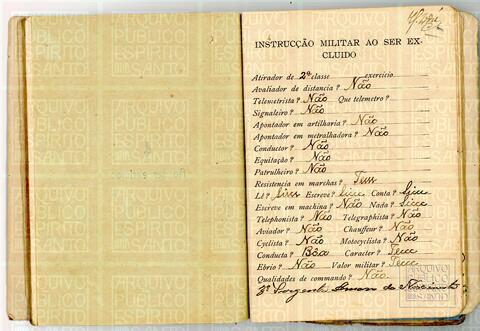 INSTRUCÇÃO MILITAR AO SER EX-
CLUIDO
Atirador de 2ª classe exercicio
Avaliador de distancia? Não
Telemetrista? Não Que telemetro?
Signaleiro? Não
Apontador em artilharia? Não
Apontador em metralhadora? Não
Conductor? Não
Equitação? Não
Patrulheiro? Não
Resistencia em marchas? Tem
Lê? Sim Escreve? Sim Conta? Sim
Escreve em machina? Não Nada? Sim
Telephonista? Não Telegraphista? Não
Aviador? Não Chauffeur? Não
Cyclista? Não Motocyclista? Não
Conducta? Bôa Caracter? Tem
Ebrio? Não Valor militar? Tem
Qualidades de commando? Não.
Sargento do Nascimento
ARQUIVO PUBLICO
ESPIRITO SANTO